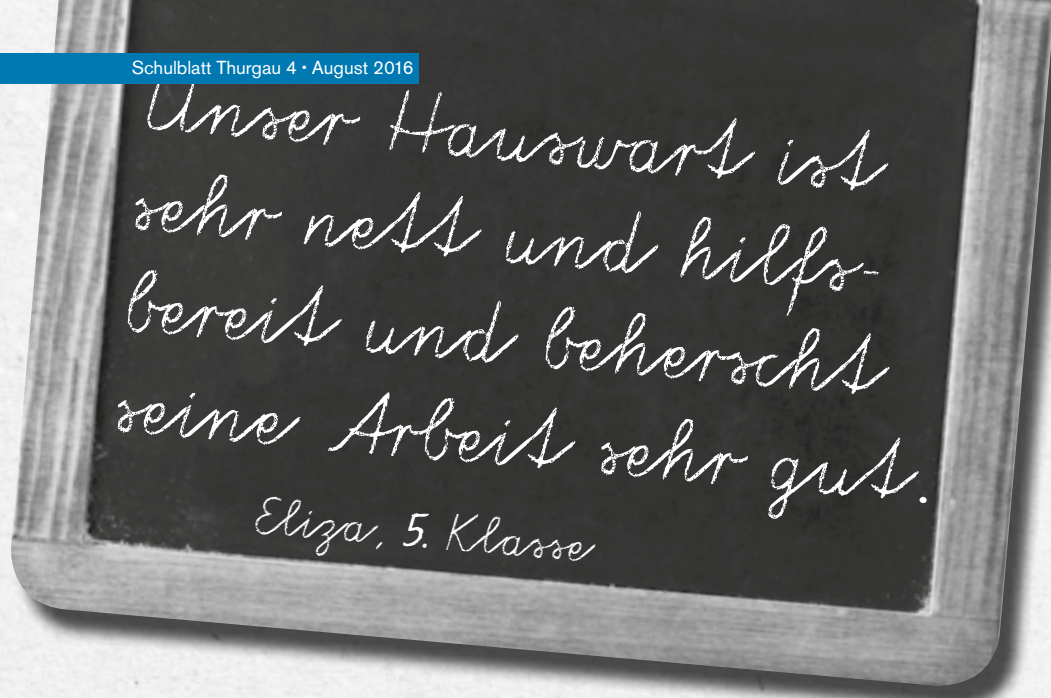 Schulblatt Thurgau 4 • August 2016
Unser Hauswart ist
sehr nett und hilfs-
bereit und beherscht
seine Arbeit sehr gut.
Eliza, 5. Klasse